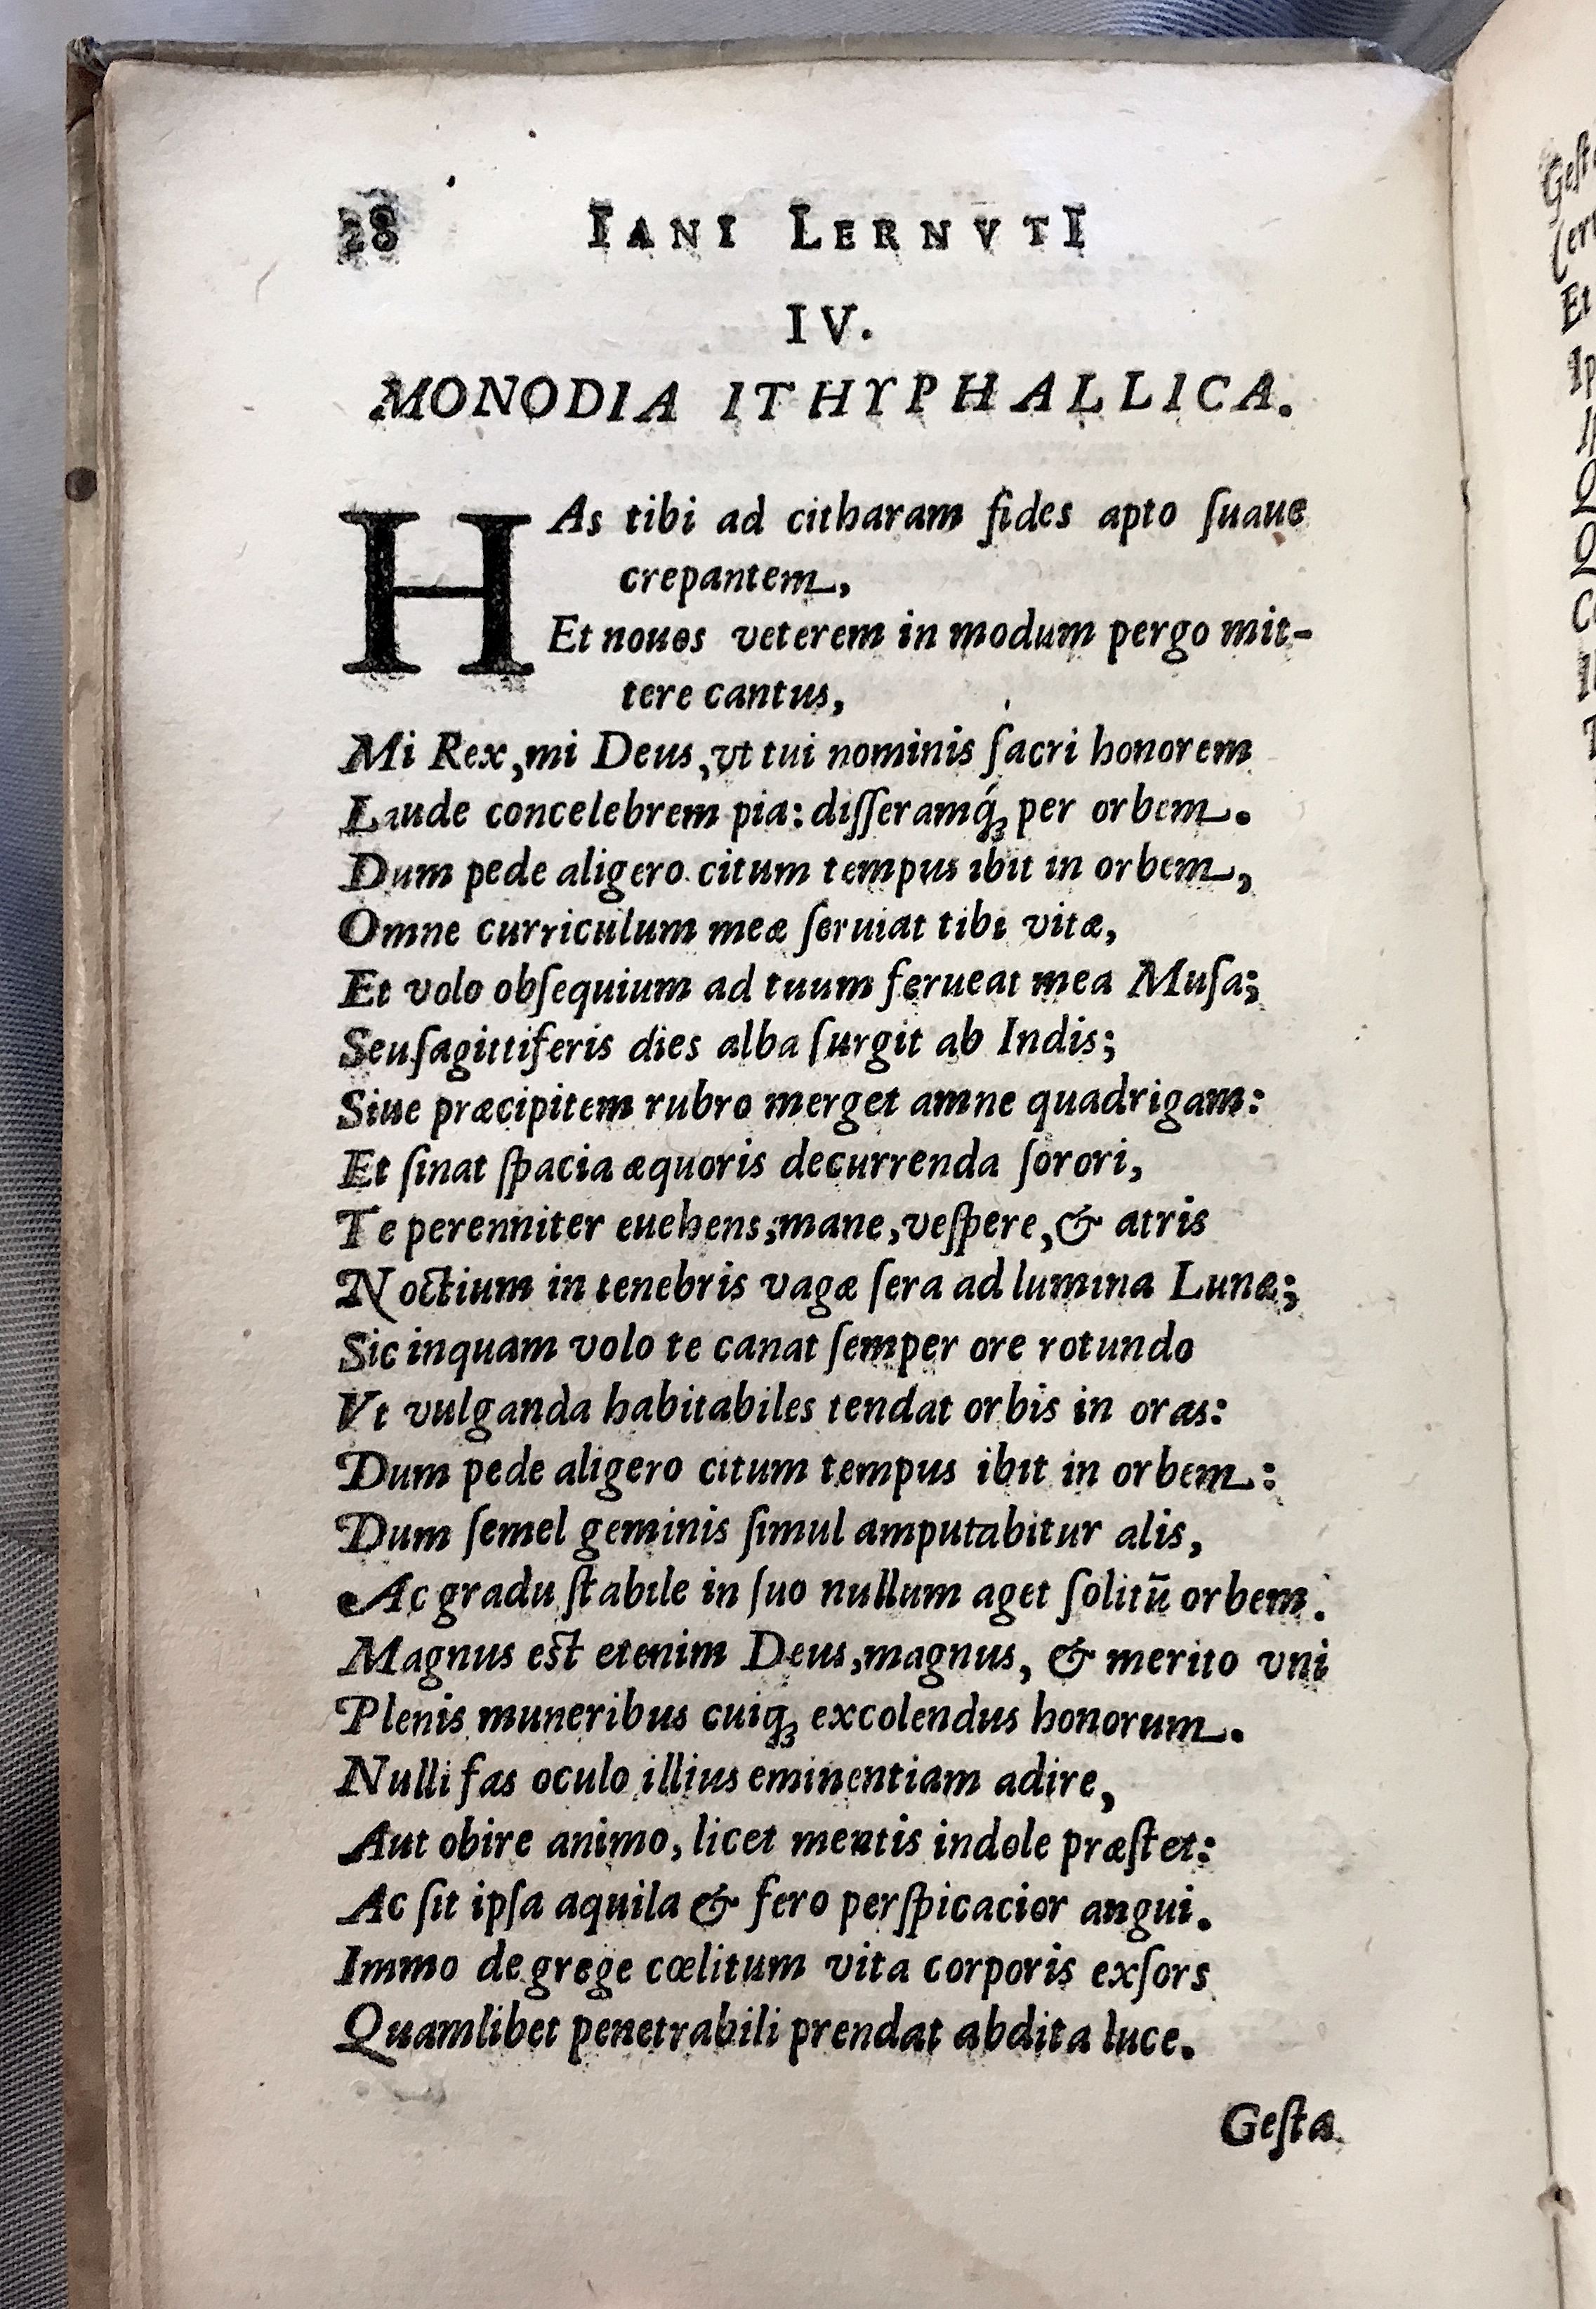 28 IANI LERNVTI
IV.
MONODIA ITHYPHALLICA.
HAs tibi ad citharam fides apto ſuaue
crepantem,
Et nouos veterem in modum pergo mit-
tere cantus,
Mi Rex, mi Deus, vt tui nominis ſacri honorem
Laude concelebrem pia: diſſeramq́ꝫ per orbem.
Dum pede aligero citum tempus ibit in orbem,
Omne curriculum meæ ſeruiat tibi vitæ,
Et volo obſequium ad tuum ferueat mea Muſa;
Seu ſagittiferis dies alba ſurgit ab Indis;
Siue præcipitem rubro merget amne quadrigam:
Et ſinat ſpacia æquoris decurrenda ſorori,
Te perenniter euehens; mane, veſpere, & atris
Noctium in tenebris vagæ ſera ad lumina Lunæ;
Sic inquam volo te canat ſemper ore rotundo
Vt vulganda habitabiles tendat orbis in oras:
Dum pede aligero citum tempus ibit in orbem:
Dum ſemel geminis ſimul amputabitur alis,
Ac gradu ſtabile in ſuo nullum aget ſolitū orbem.
Magnus eſt etenim Deus, magnus, & merito vni
Plenis muneribus cuiqꝫ excolendus honorum.
Nulli fas oculo illius eminentiam adire,
Aut obire animo, licet mentis indole præſtet:
Ac ſit ipſa aquila & fero perſpicacior angui.
Immo de grege cœlitum vita corporis exſors
Quamlibet penetrabili prendat abdita luce.
Geſta
Et